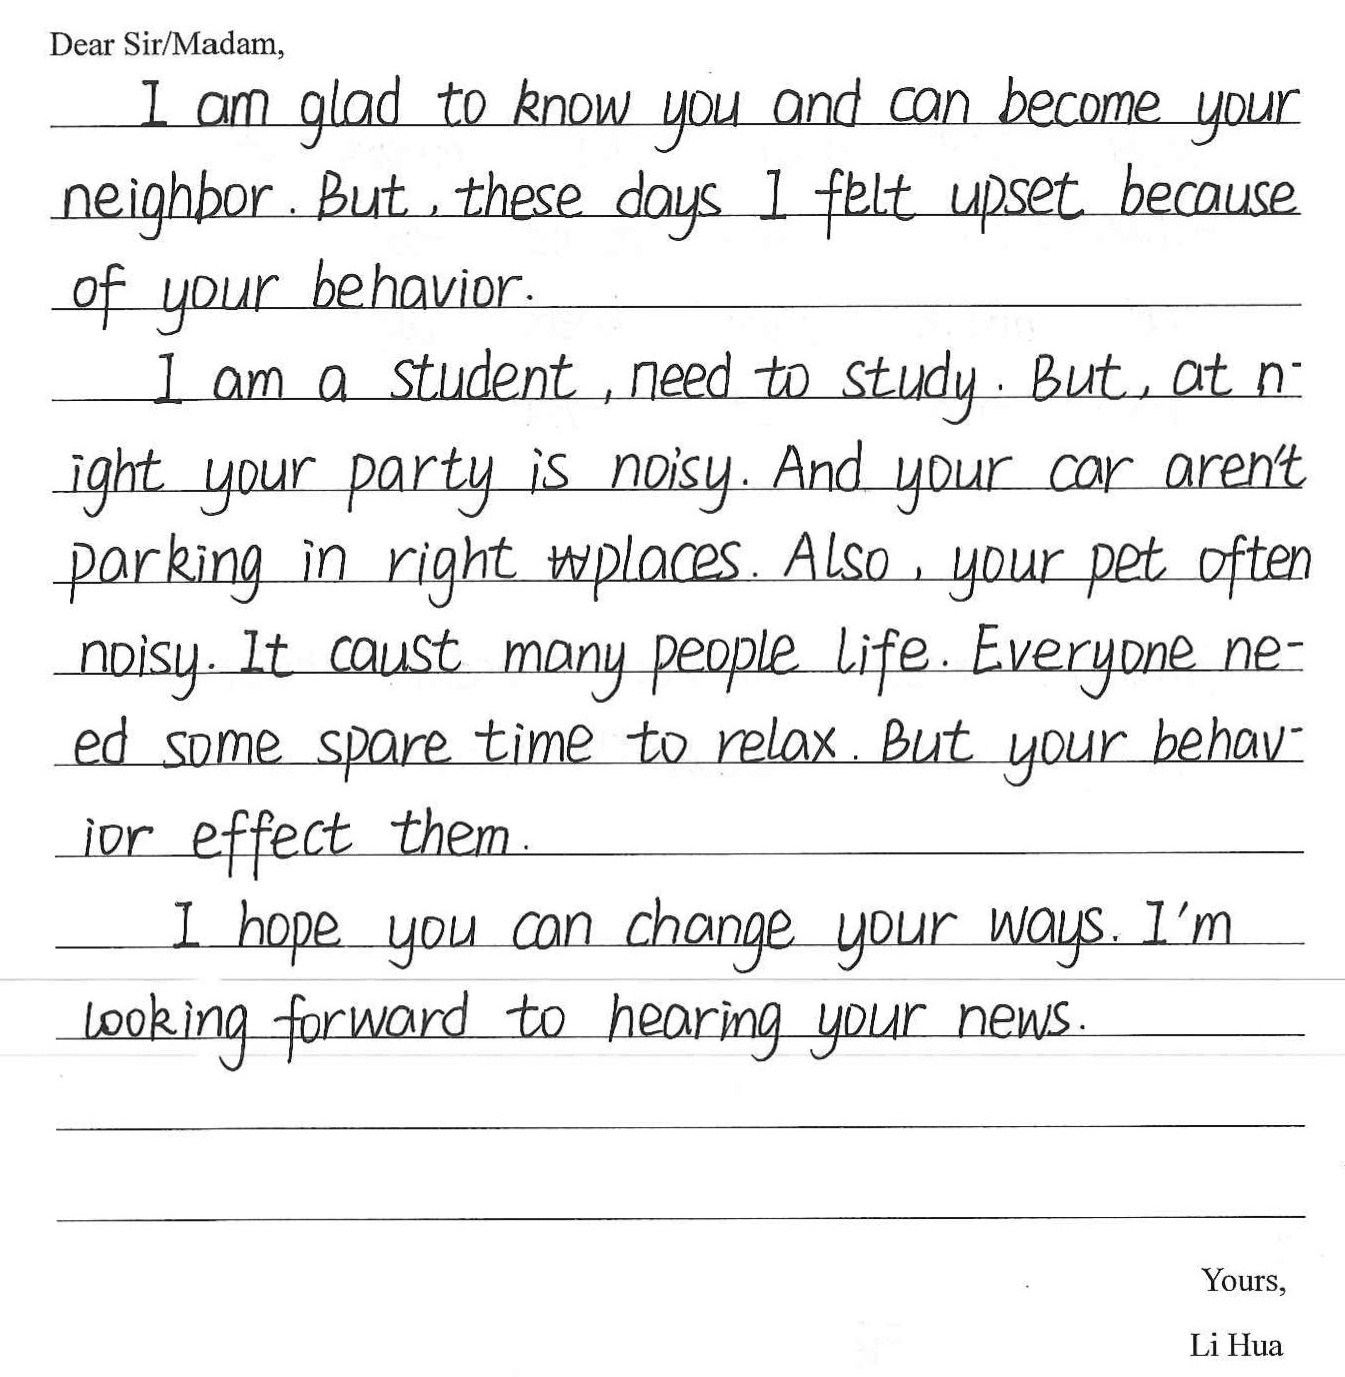 Dear Sir/Madam,
I am glad to know you and can become your
neighbor. But, these days I felt upset because
of your behavior.
I am a student, need to study. But, at n-
ight your party is noisy. And your car aren't
parking in right places. Also, your pet often
noisy. It caust many people life. Everyone ne-
ed some spare time to relax. But your behav-
ior effect them.
I hope you can change your ways. I'm
looking forward to hearing your news.
Yours,
Li Hua